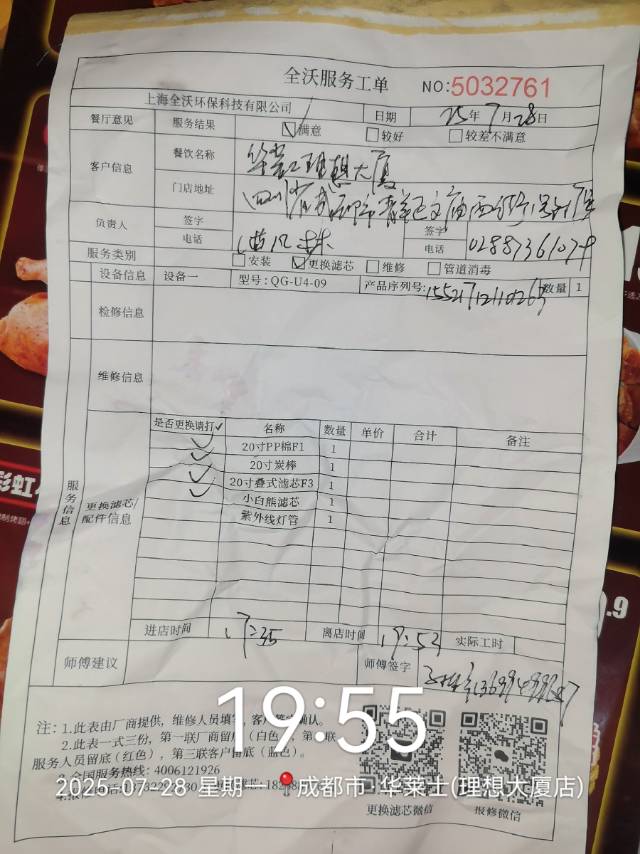 全沃服务工单 NO:5032761
上海全沃环保科技有限公司 日期 25年7月28日
餐厅意见 服务结果 ☑满意 □较好 □较差不满意
客户信息 餐饮名称 华莱士理想大厦
门店地址 四川省成都市青羊区文庙西街1号
负责人 签字 签字
电话 电话
服务类别 □安装 ☑更换滤芯 □维修 □管道消毒
设备信息 设备一 型号:QG-U4-09 产品序列号: 数量 1
检修信息
维修信息
服务信息
更换滤芯/配件信息
是否更换请打✓ 名称 数量 单价 合计 备注
✓ 20寸PP棉F1 1
✓ 20寸炭棒 1
✓ 20寸叠式滤芯F3 1
✓ 小白熊滤芯 1
紫外线灯管 1
进店时间 17:35 离店时间 19:53 实际工时
师傅建议 师傅签字
注:1.此表由厂商提供,维修人员填写,客户签字确认。
2.此表一式三份,第一联厂商留底(白色),第二联
服务人员留底(红色),第三联客户留底(蓝色)。
3.全国服务热线:4006121926
更换滤芯微信 报修微信
19:55
2025-07-28 星期一 成都市·华莱士(理想大厦店)